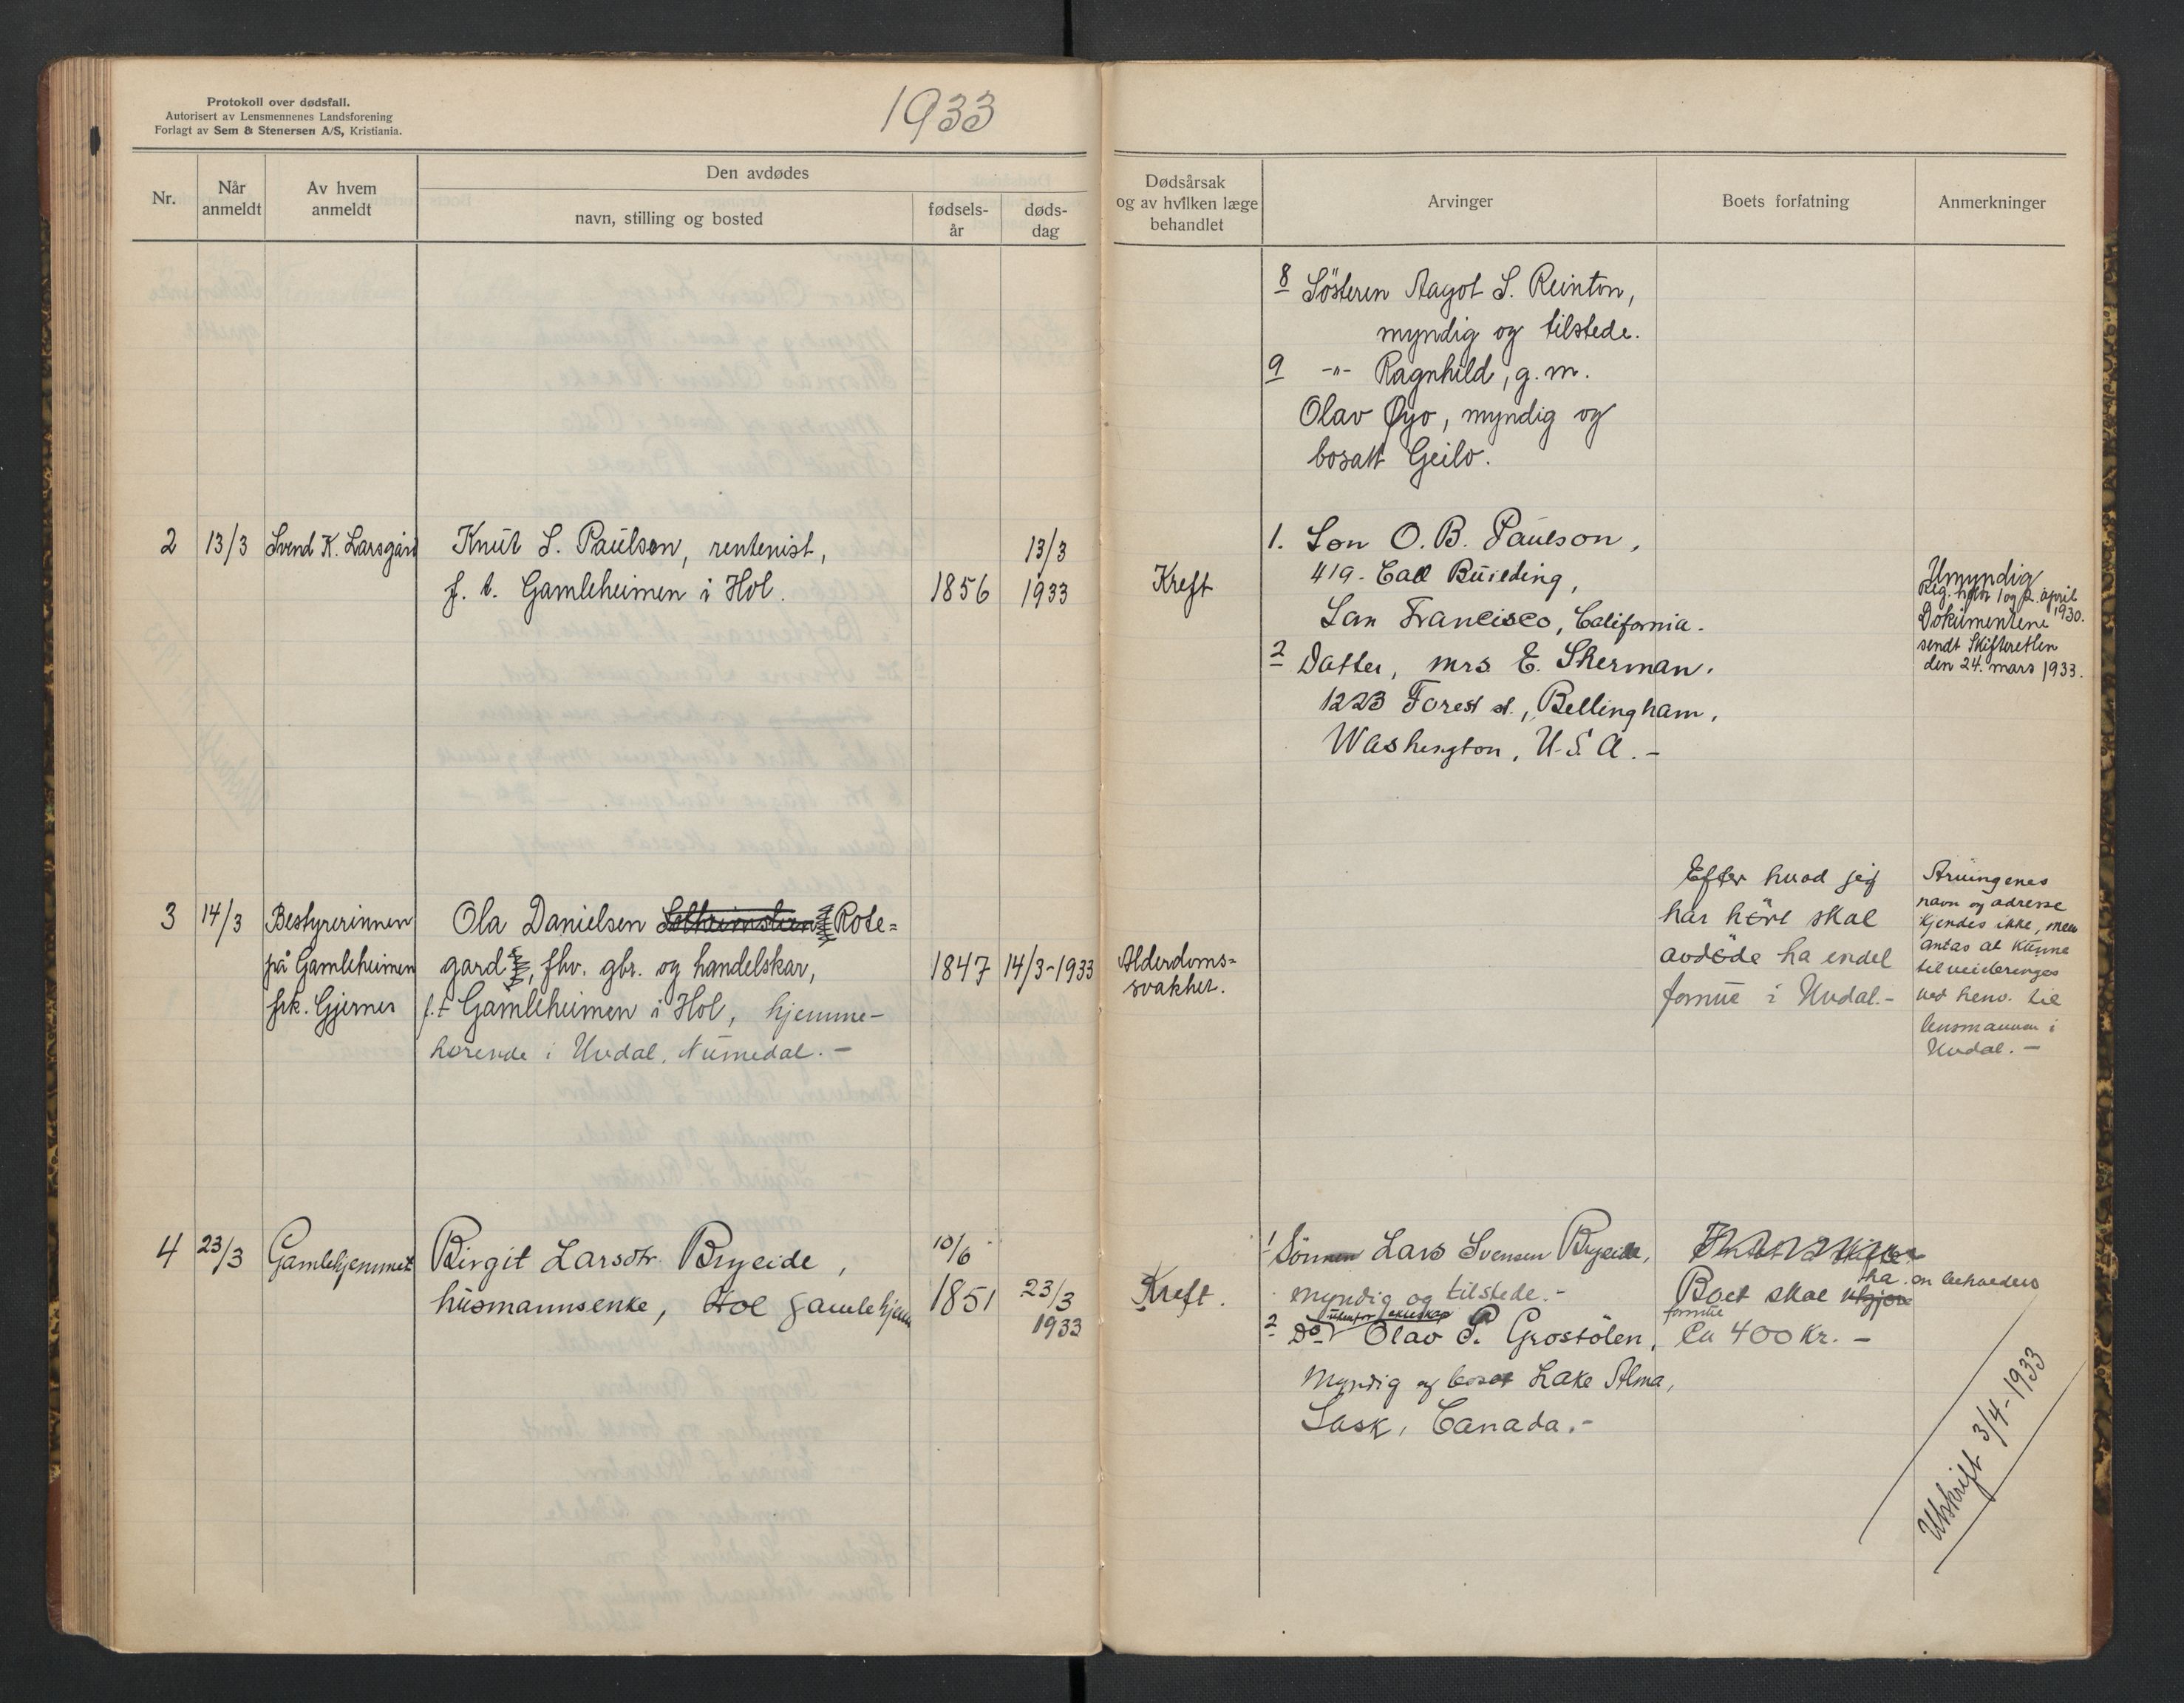 Protokoll over dødsfall.
Autorisert av Lensmennenes Landsforening
Forlagt av Sem & Stenersen A/S, Kristiania.
1933
Nr.
Når
anmeldt
Av hvem
anmeldt
Den avdødes
navn, stilling og bosted
fødsels-
år
døds-
dag
Dødsårsak
og av hvilken læge
behandlet
Arvinger
Boets forfatning
Anmerkninger
8 Søsteren Aagot S. Reinton,
myndig og tilstede.
9 -"- Ragnhild, g.m.
Olav Øyo, myndig og
bosatt Geilo.
2 13/3 Svend K. Larsgård
Knut S. Paulson, rentenist,
f. t. Gamleheimen i Hol.
1856
13/3
1933
Kreft
1. Søn O. B. Paulson,
419. Call Building,
San Francisco, California.
2 Datter, mrs. E. Sherman.
1223 Forest st., Bellingham,
Washington, U.S.A. -
Umyndig
1 og 2. april
1930.
Dokumentene
sendt Skifteretten
den 24. mars 1933.
3 14/3 Bestyrerinnen
på Gamleheimen
frk. Gjernes
Ola Danielsen Rote=
gard, fhv. gbr. og handelskar,
f.t. Gamleheimen i Hol, hjemme-
hørende i Uvdal, Numedal. -
1847
14/3-1933
Alderdoms=
svakhet.
Efter hvad jeg
har hört skal
avdöde ha endel
formue i Uvdal. -
Arvingenes
navn og adresse
kjendes ikke, men
antas at kunne
tilveiebringes
ved henv. til
lensmannen i
Uvdal. -
4 23/3 Gamlehjemmet
Birgit Larsdtr. Bryeide,
husmannsenke, Hol gamlehjem
10/6
1851
23/3
1933
Kreft.
1 Sönnen Lars Svensen Bryeide,
myndig og tilstede. -
utenfor ekteskap
2 Do Olav P. Grostölen,
Myndig og bosat Lake Alma,
Sask, Canada. -
ha en beholden
Boet skal utgjøre
formue
Ca 400 Kr. -
Utskrift 3/4-1933